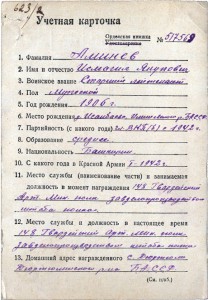 Учетная карточка
Орденская книжка
№ 517569
1. Фамилия Аминев
2. Имя и отчество Исмагил Якупович
3. Воинское звание Старший лейтенант
4. Пол Мужской
5. Год рождения 1906 г.
6. Место рождения БАССР
7. Партийность (с какого года) 1942 г.
8. Образование среднее
9. Национальность Башкирин
10. С какого года в Красной Армии 1942 г.
11. Место службы (наименование части) и занимаемая
должность в момент награждения 148 Гвардейский
Арт. Мин. полк завделопроизводством
штаба полка
12. Место службы и должность в настоящее время
148 Гвардейский Арт. Мин. полк
завделопроизводством штаба полка
13. Домашний адрес награжденного
БАССР
(См. на/об.)